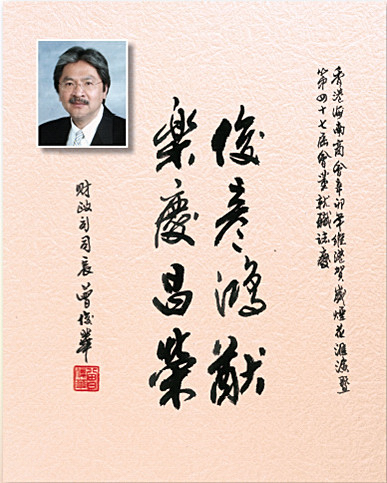 香港海南商會辛卯年維港賀歲煙花滙演暨
第四十七屆會董就職誌慶
俊彥鴻猷
樂慶昌榮
財政司司長曾俊華